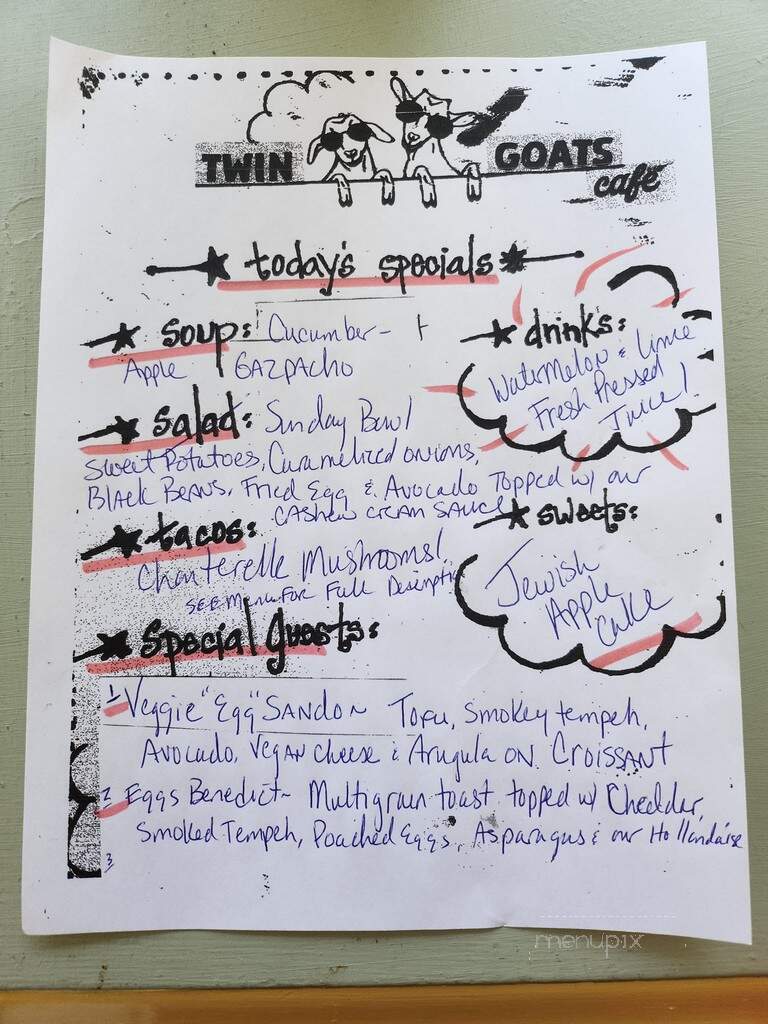 TWIN GOATS
café
today's specials
soup: Cucumber-
Apple GAZPACHO
drinks:
Watermelon & Lime
Fresh Pressed
Juice!
salad: Sunday Bowl
Sweet Potatoes, Caramelized onions,
Black Beans, Fried Egg & Avocado Topped w/ our
CASHEW CREAM SAUCE
tacos:
Chanterelle Mushrooms!
SEE Menu For Full Descriptio
sweets:
Jewish
Apple
Cake
Special guests:
1 Veggie "Egg" SANDO~ Tofu, Smokey tempeh,
Avocado, Vegan cheese & Arugula ON Croissant
2 Eggs Benedict~ Multigrain toast topped w/ Cheddar,
Smoked Tempeh, Poached Eggs, Asparagus & our Hollandaise
3
menupix